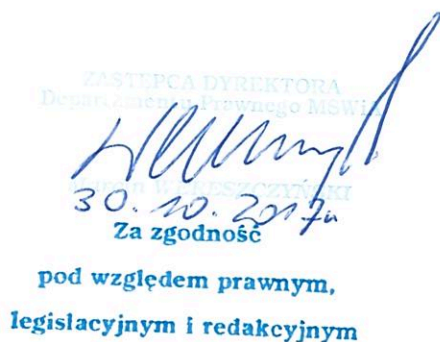 ZASTĘPCA DYREKTORA
Departamentu Prawnego MSWiA
30.10.2017r
Za zgodność
pod względem prawnym,
legislacyjnym i redakcyjnym